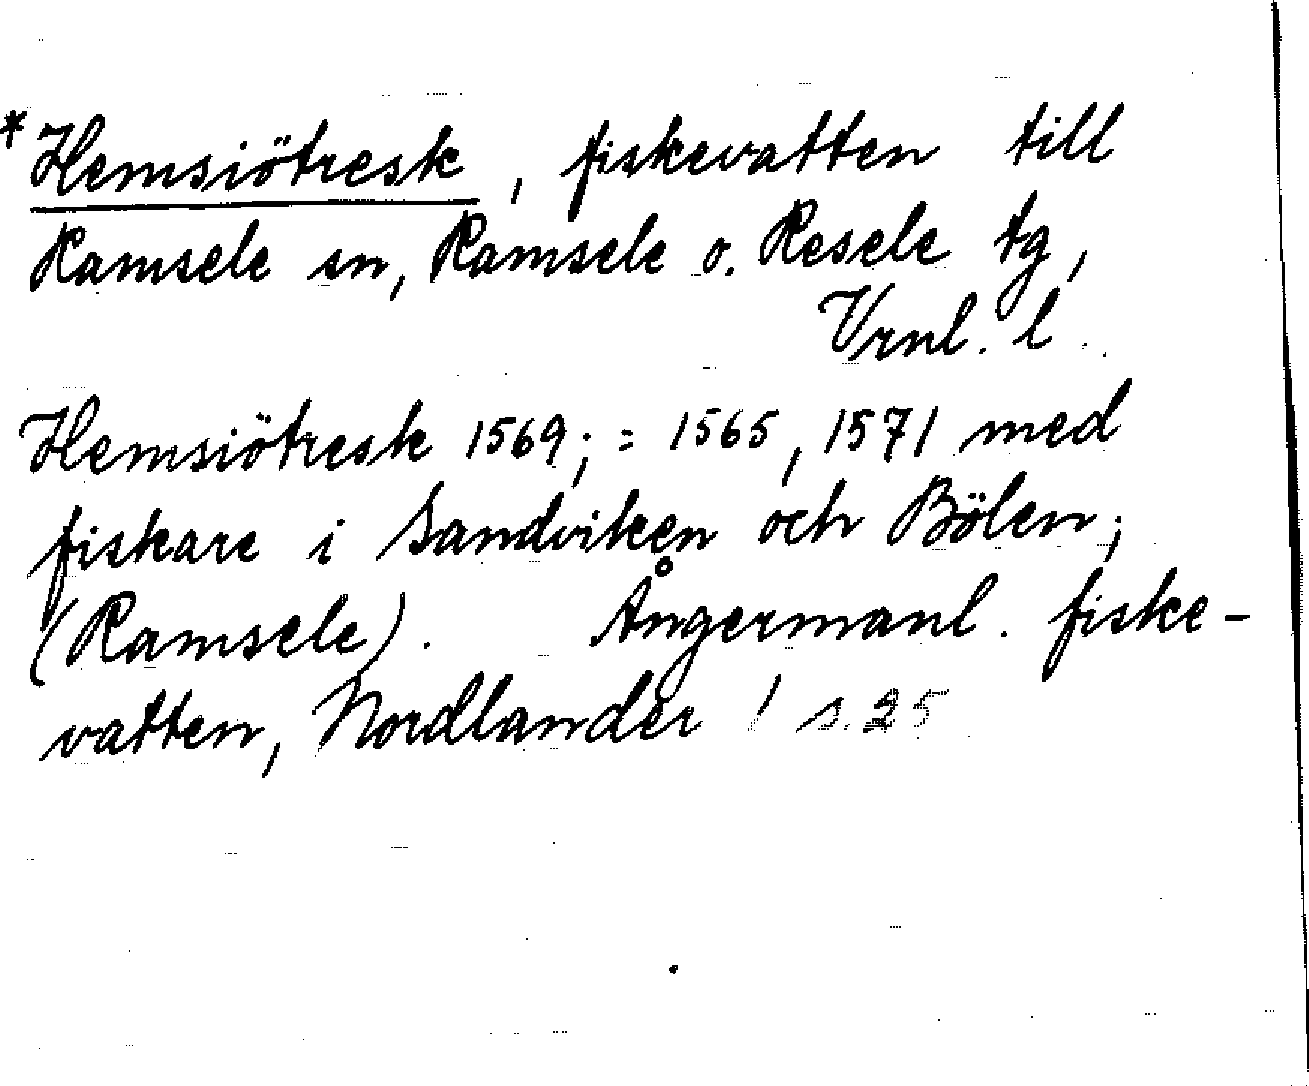 *Hemsiötresk, fiskevatten till
Ramsele sn, Ramsele o. Resele tg,
Vrnl. l.
Hemsiötresk 1569; = 1565, 1571 med
fiskare i Sandviken och Bölen;
(Ramsele). Ångermanl. fiske-
vatten, Nordlander / s. 25